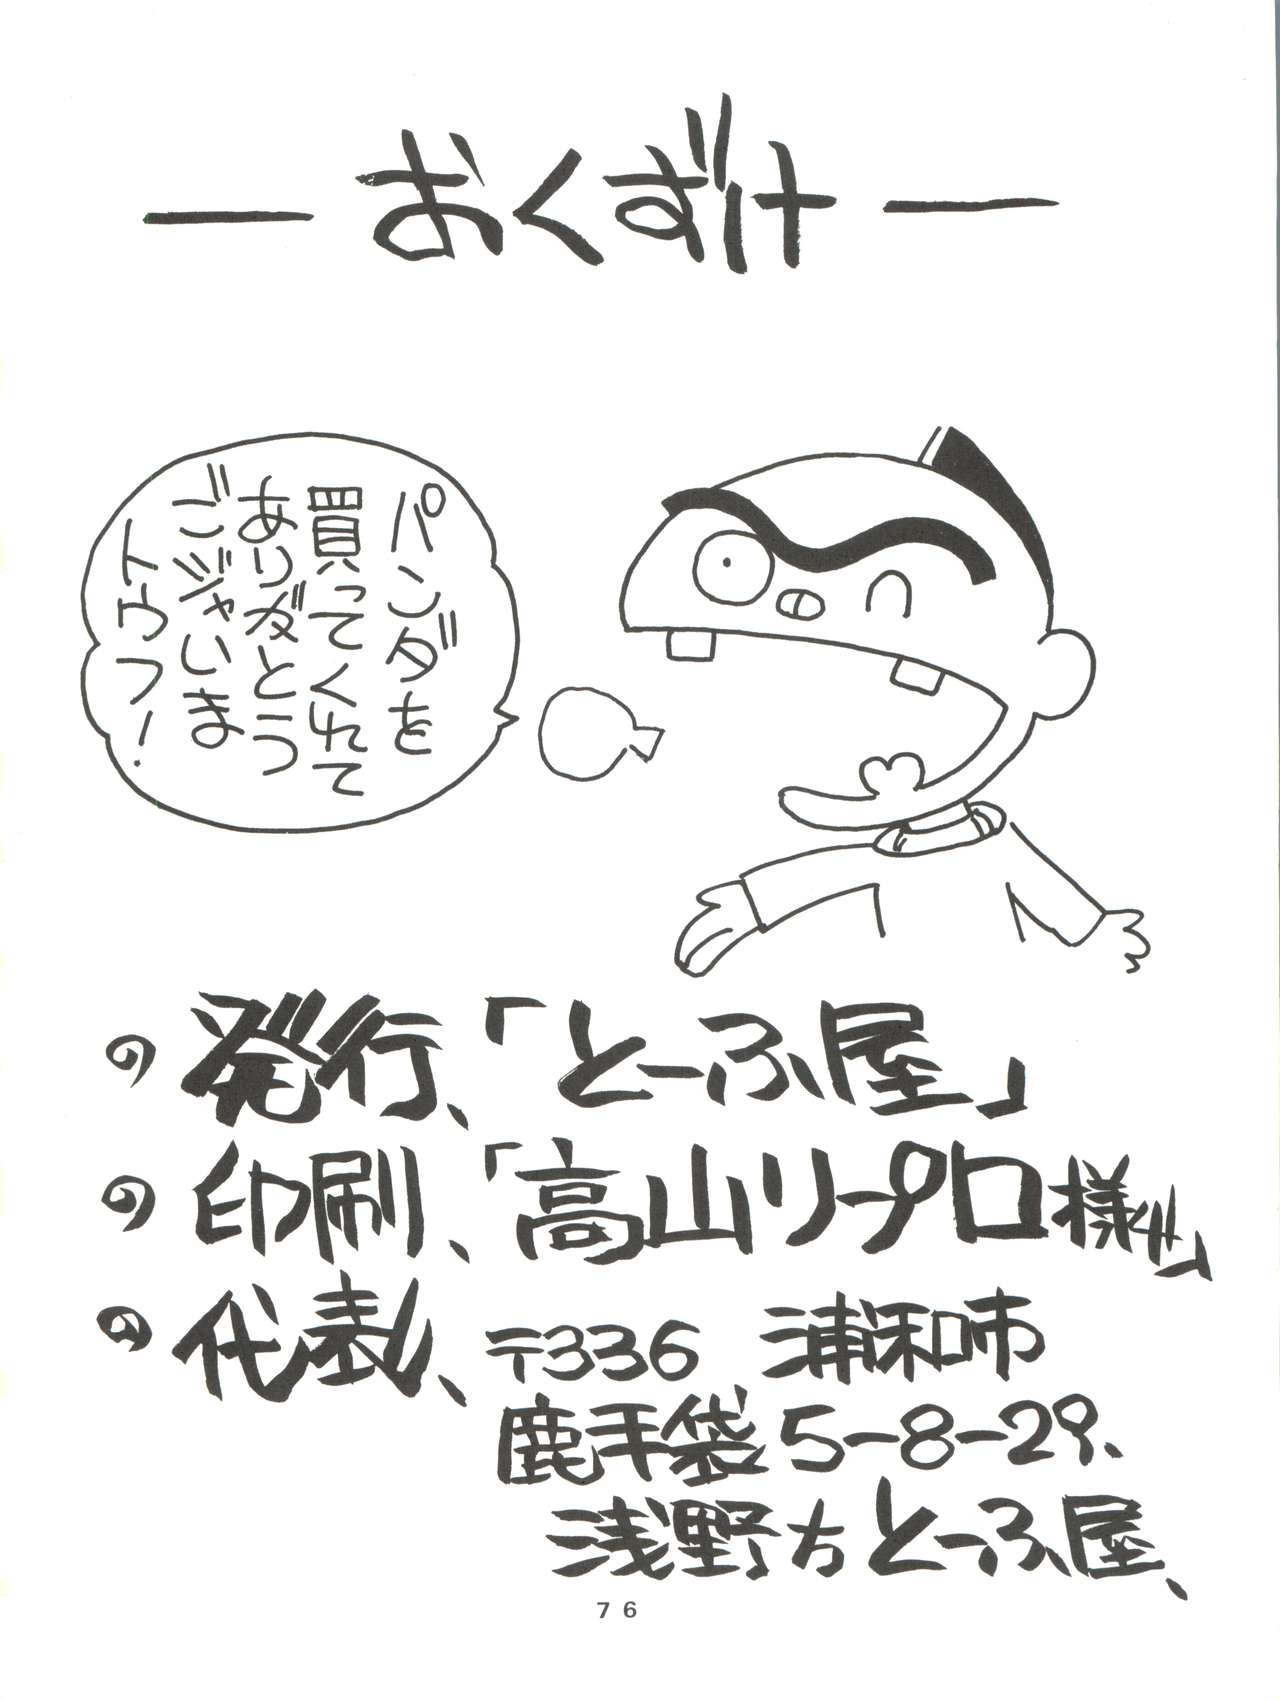 ―おくずけ―
パンダを
買ってくれて
ありがとう
ごジャいま
トウフ!
の発行、「とーふ屋」
の印刷、「高山リープロ様」
の代表、〒336 浦和市
鹿手袋5-8-29、
浅野方とーふ屋、
76